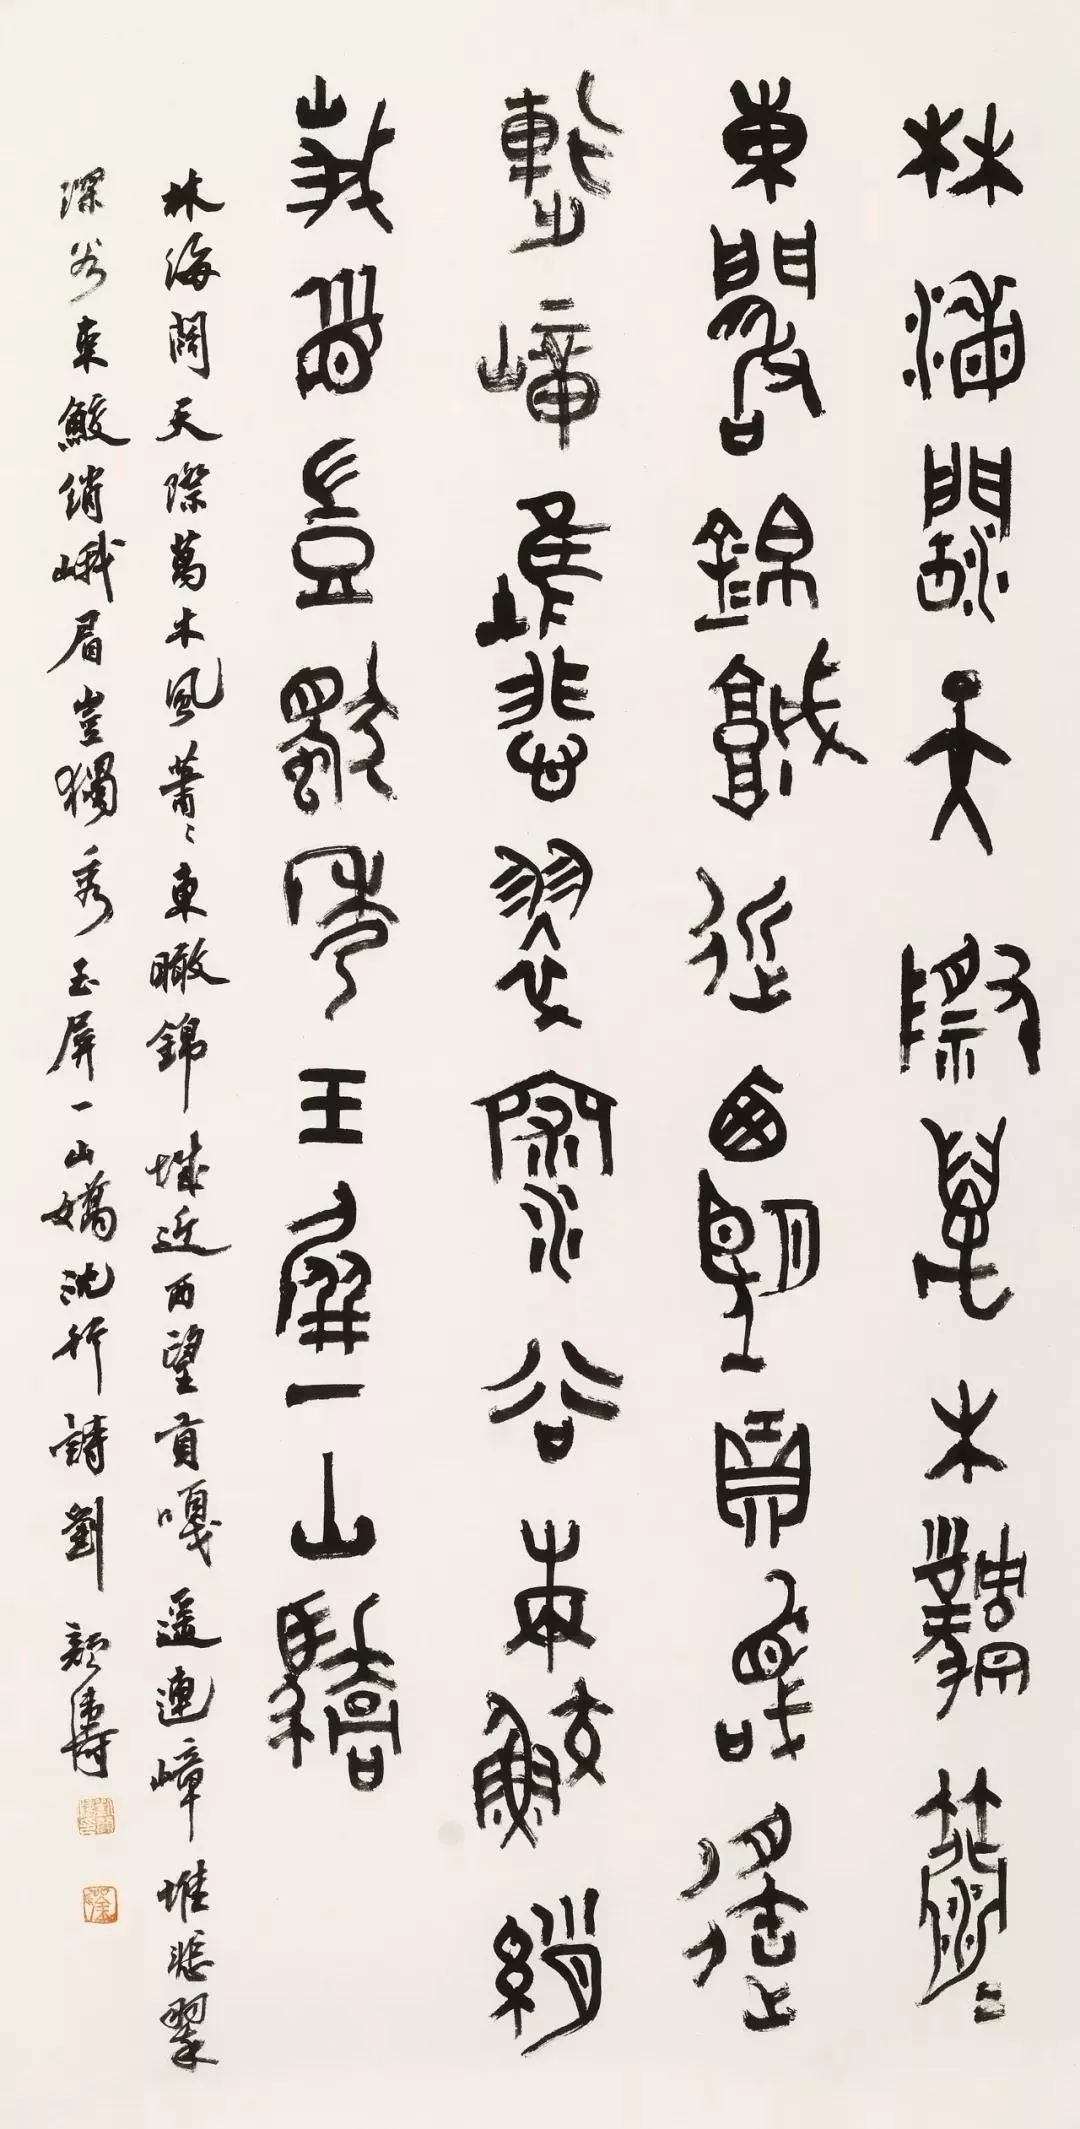 林海闊天際萬木風蕭〻
東瞰錦城近西望貢嘎遥
連嶂堆悲翠深谷束鮫綃
峨眉豈獨秀玉屏一山嬌
林海闊天際萬木風蕭〻東瞰錦城近西望貢嘎遥連嶂堆悲翠
深谷束鮫綃峨眉豈獨秀玉屏一山嬌沈行詩劉顔濤